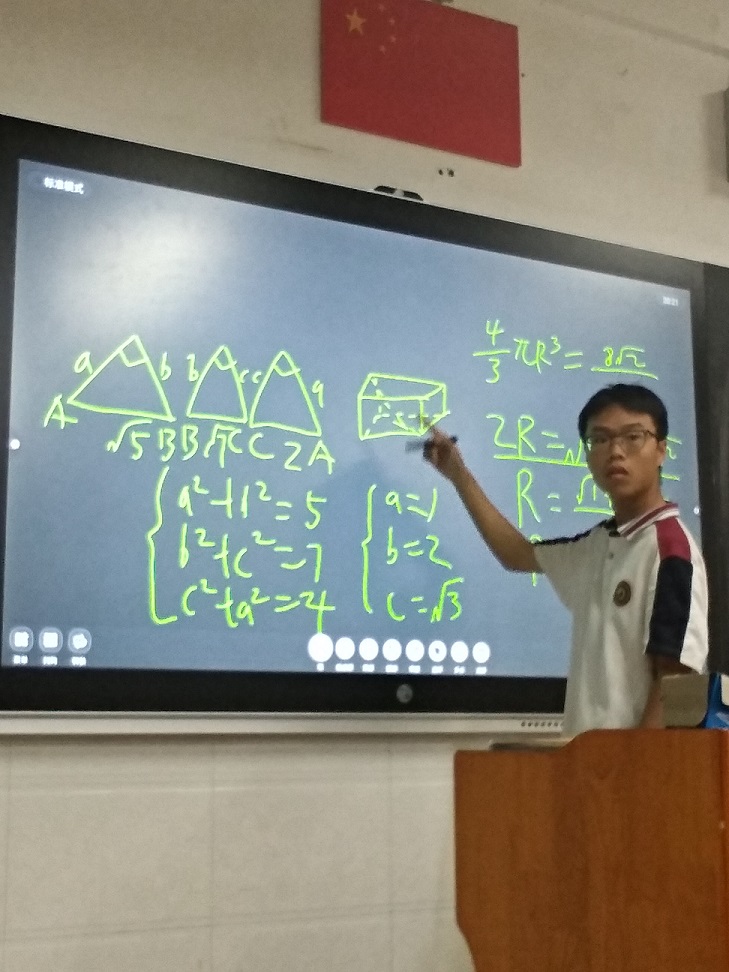 标准模式
a b b c c a
A √5 B B √7 C C 2 A
a²+b²=5
b²+c²=7
c²+a²=4
a=1
b=2
c=√3
4/3 πR³= 8√2
2R=√
R=